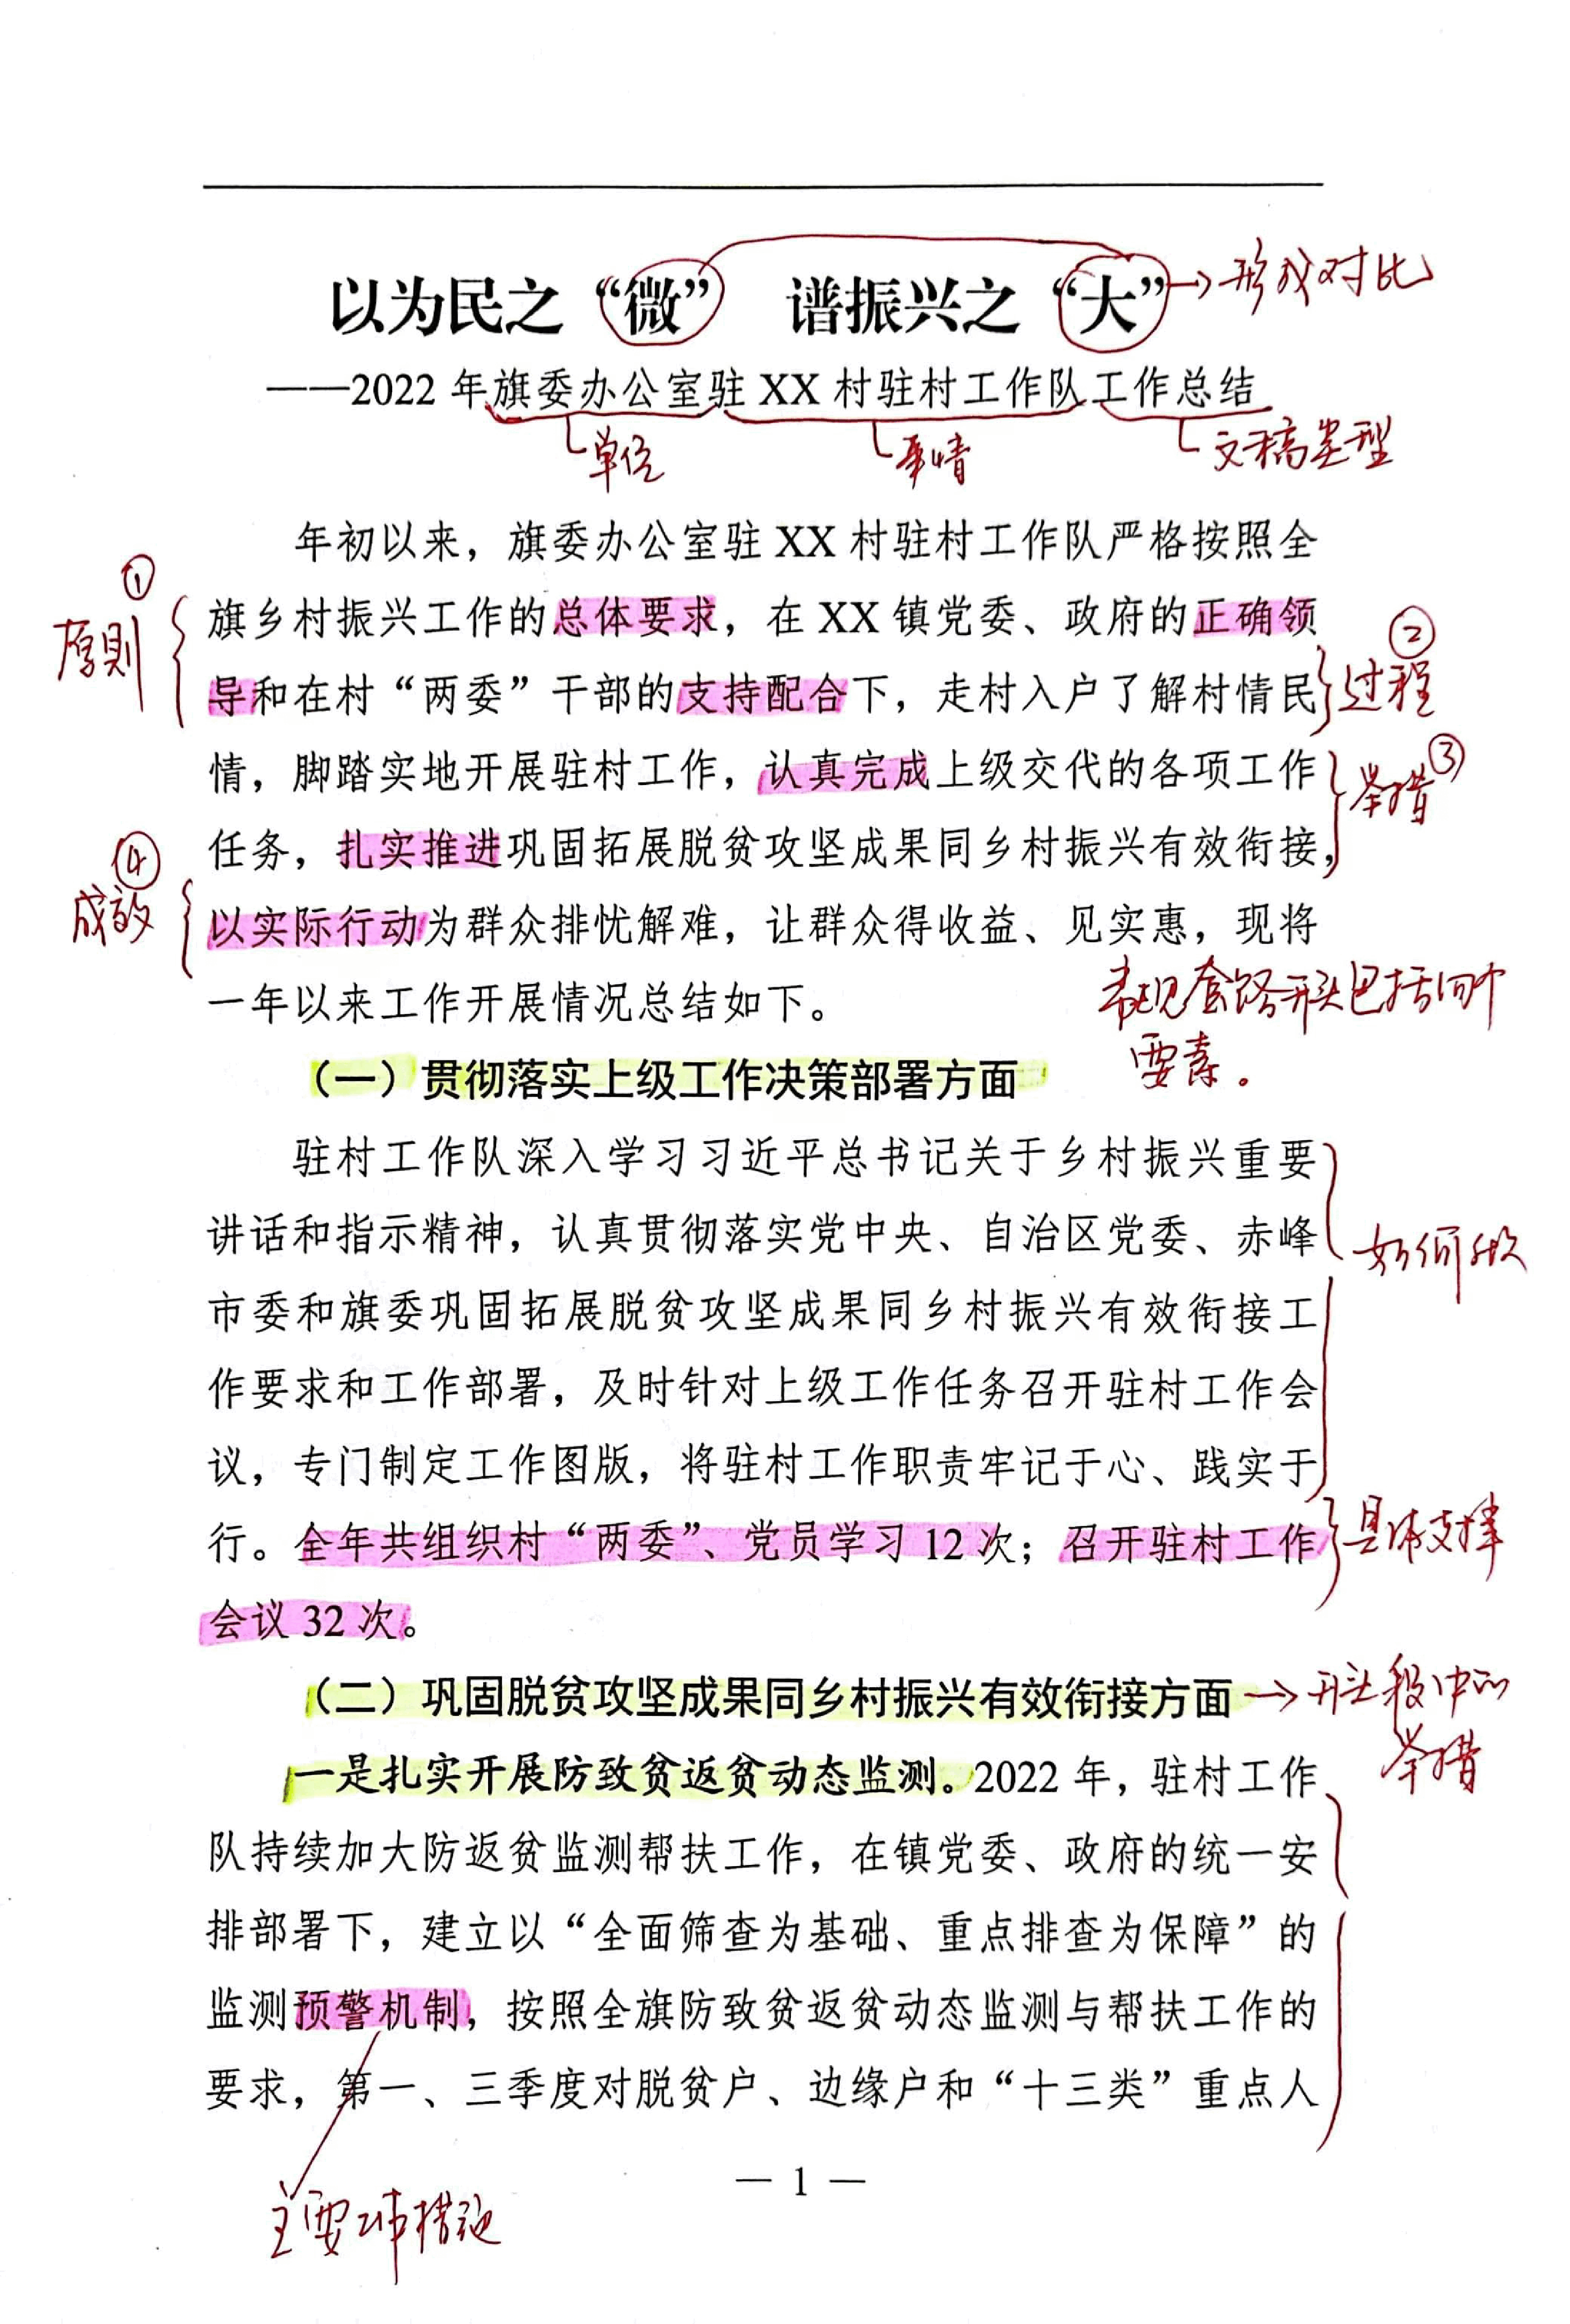 以为民之“微”　谱振兴之“大”→形成对比
——2022 年旗委办公室驻 XX 村驻村工作队工作总结
单位
事情
文稿类型
年初以来，旗委办公室驻 XX 村驻村工作队严格按照全
①
原则
旗乡村振兴工作的总体要求，在 XX 镇党委、政府的正确领
②
过程
导和在村“两委”干部的支持配合下，走村入户了解村情民
情，脚踏实地开展驻村工作，认真完成上级交代的各项工作
③
举措
任务，扎实推进巩固拓展脱贫攻坚成果同乡村振兴有效衔接，
④
成效
以实际行动为群众排忧解难，让群众得收益、见实惠，现将
一年以来工作开展情况总结如下。
常见套路开头包括四个
要素。
（一）贯彻落实上级工作决策部署方面
驻村工作队深入学习习近平总书记关于乡村振兴重要
讲话和指示精神，认真贯彻落实党中央、自治区党委、赤峰
如何做
市委和旗委巩固拓展脱贫攻坚成果同乡村振兴有效衔接工
作要求和工作部署，及时针对上级工作任务召开驻村工作会
议，专门制定工作图版，将驻村工作职责牢记于心、践实于
行。全年共组织村“两委”、党员学习 12 次；召开驻村工作
具体支撑
会议 32 次。
（二）巩固脱贫攻坚成果同乡村振兴有效衔接方面→开头段中的
举措
一是扎实开展防致贫返贫动态监测。2022 年，驻村工作
队持续加大防返贫监测帮扶工作，在镇党委、政府的统一安
排部署下，建立以“全面筛查为基础、重点排查为保障”的
监测预警机制，按照全旗防致贫返贫动态监测与帮扶工作的
要求，第一、三季度对脱贫户、边缘户和“十三类”重点人
— 1 —
主要措施